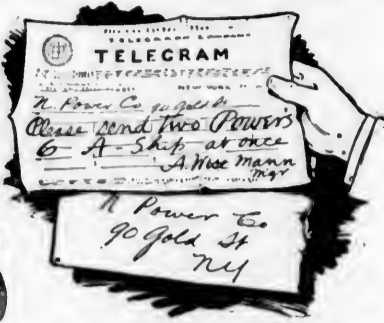 TELEGRAM
NEW YORK
N. Power Co 90 Gold St
Please send two Powers
6 A - Ship at once
A. Wise Mann
Mgr
N Power Co
90 Gold St
NY